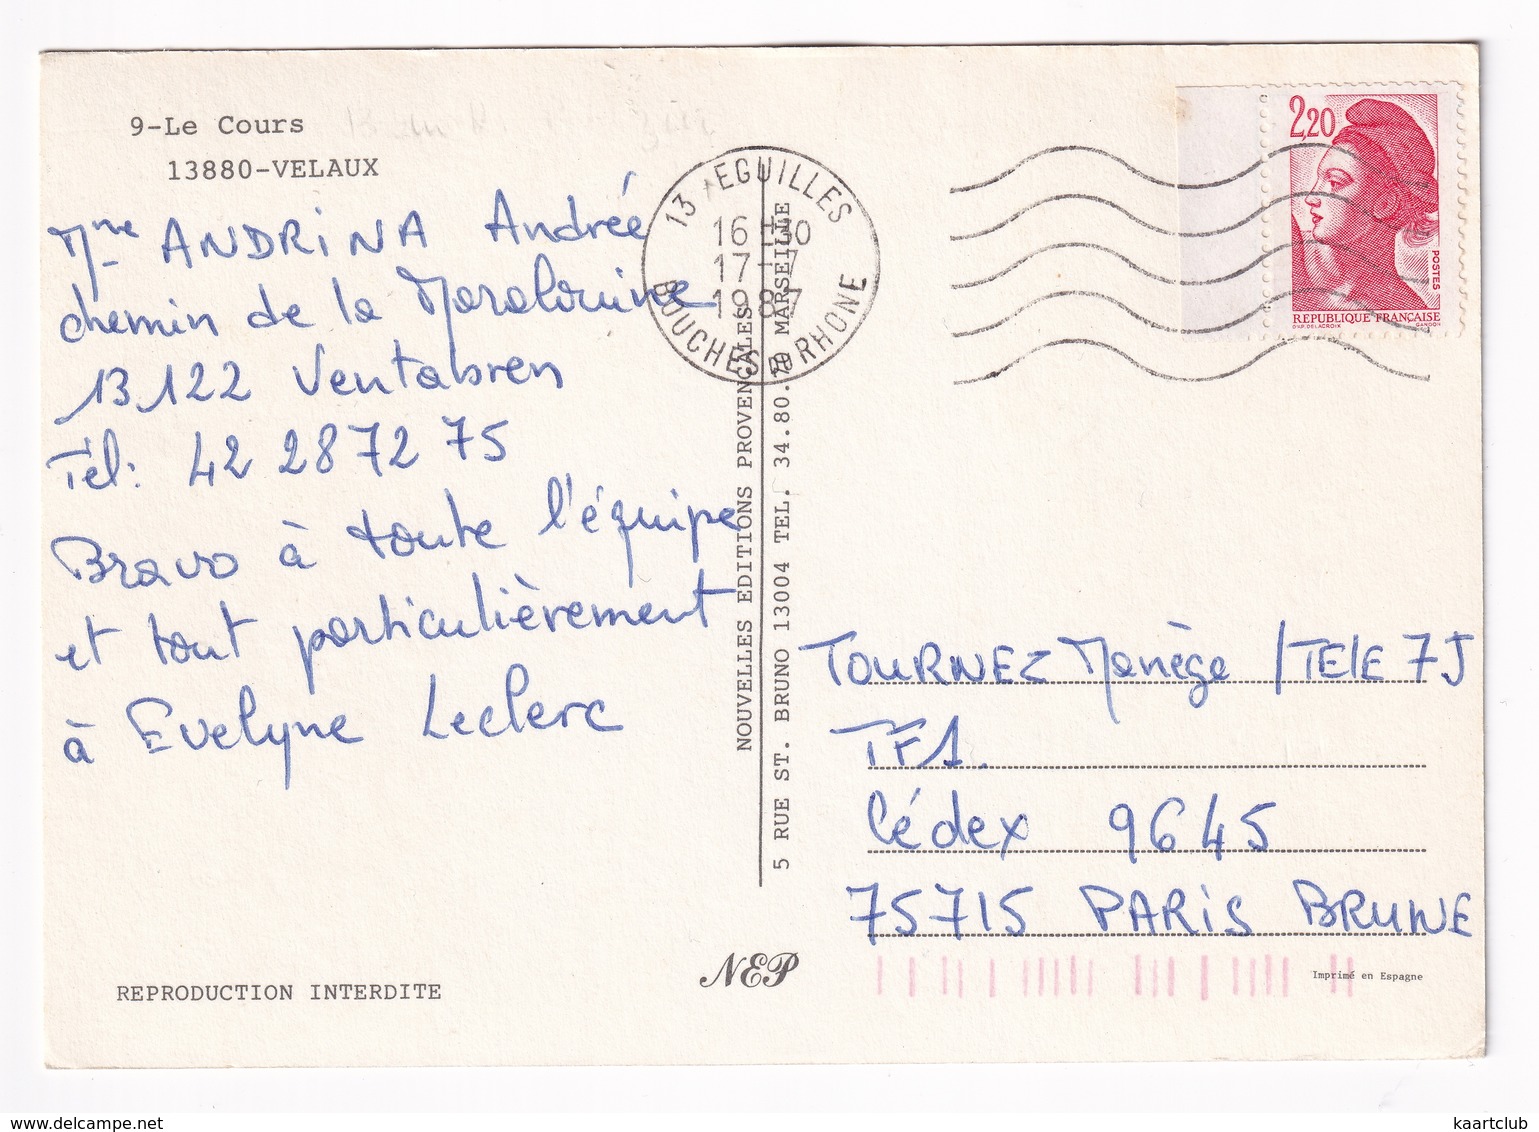 9-Le Cours
13880-VELAUX
Mme ANDRINA Andrée
chemin de la
13122 Ventabren
Tel: 42 28 72 75
Bravo à toute l'équipe
et tout particulièrement
à Evelyne Leclerc
REPRODUCTION INTERDITE
13 EGUILLES
16 H
17-7
1987
BOUCHES DU RHONE
NOUVELLES EDITIONS PROVENCALES
5 RUE ST. BRUNO 13004 TEL. 34.80.70 MARSEILLE
NEP
2,20
POSTES
REPUBLIQUE FRANÇAISE
D'AP. DELACROIX
GANDON
TOURNEZ Manège / TELE 7J
TF1.
Cédex 9645
75715 PARIS BRUNE
Imprimé en Espagne
www.delcampe.net
kaartclub